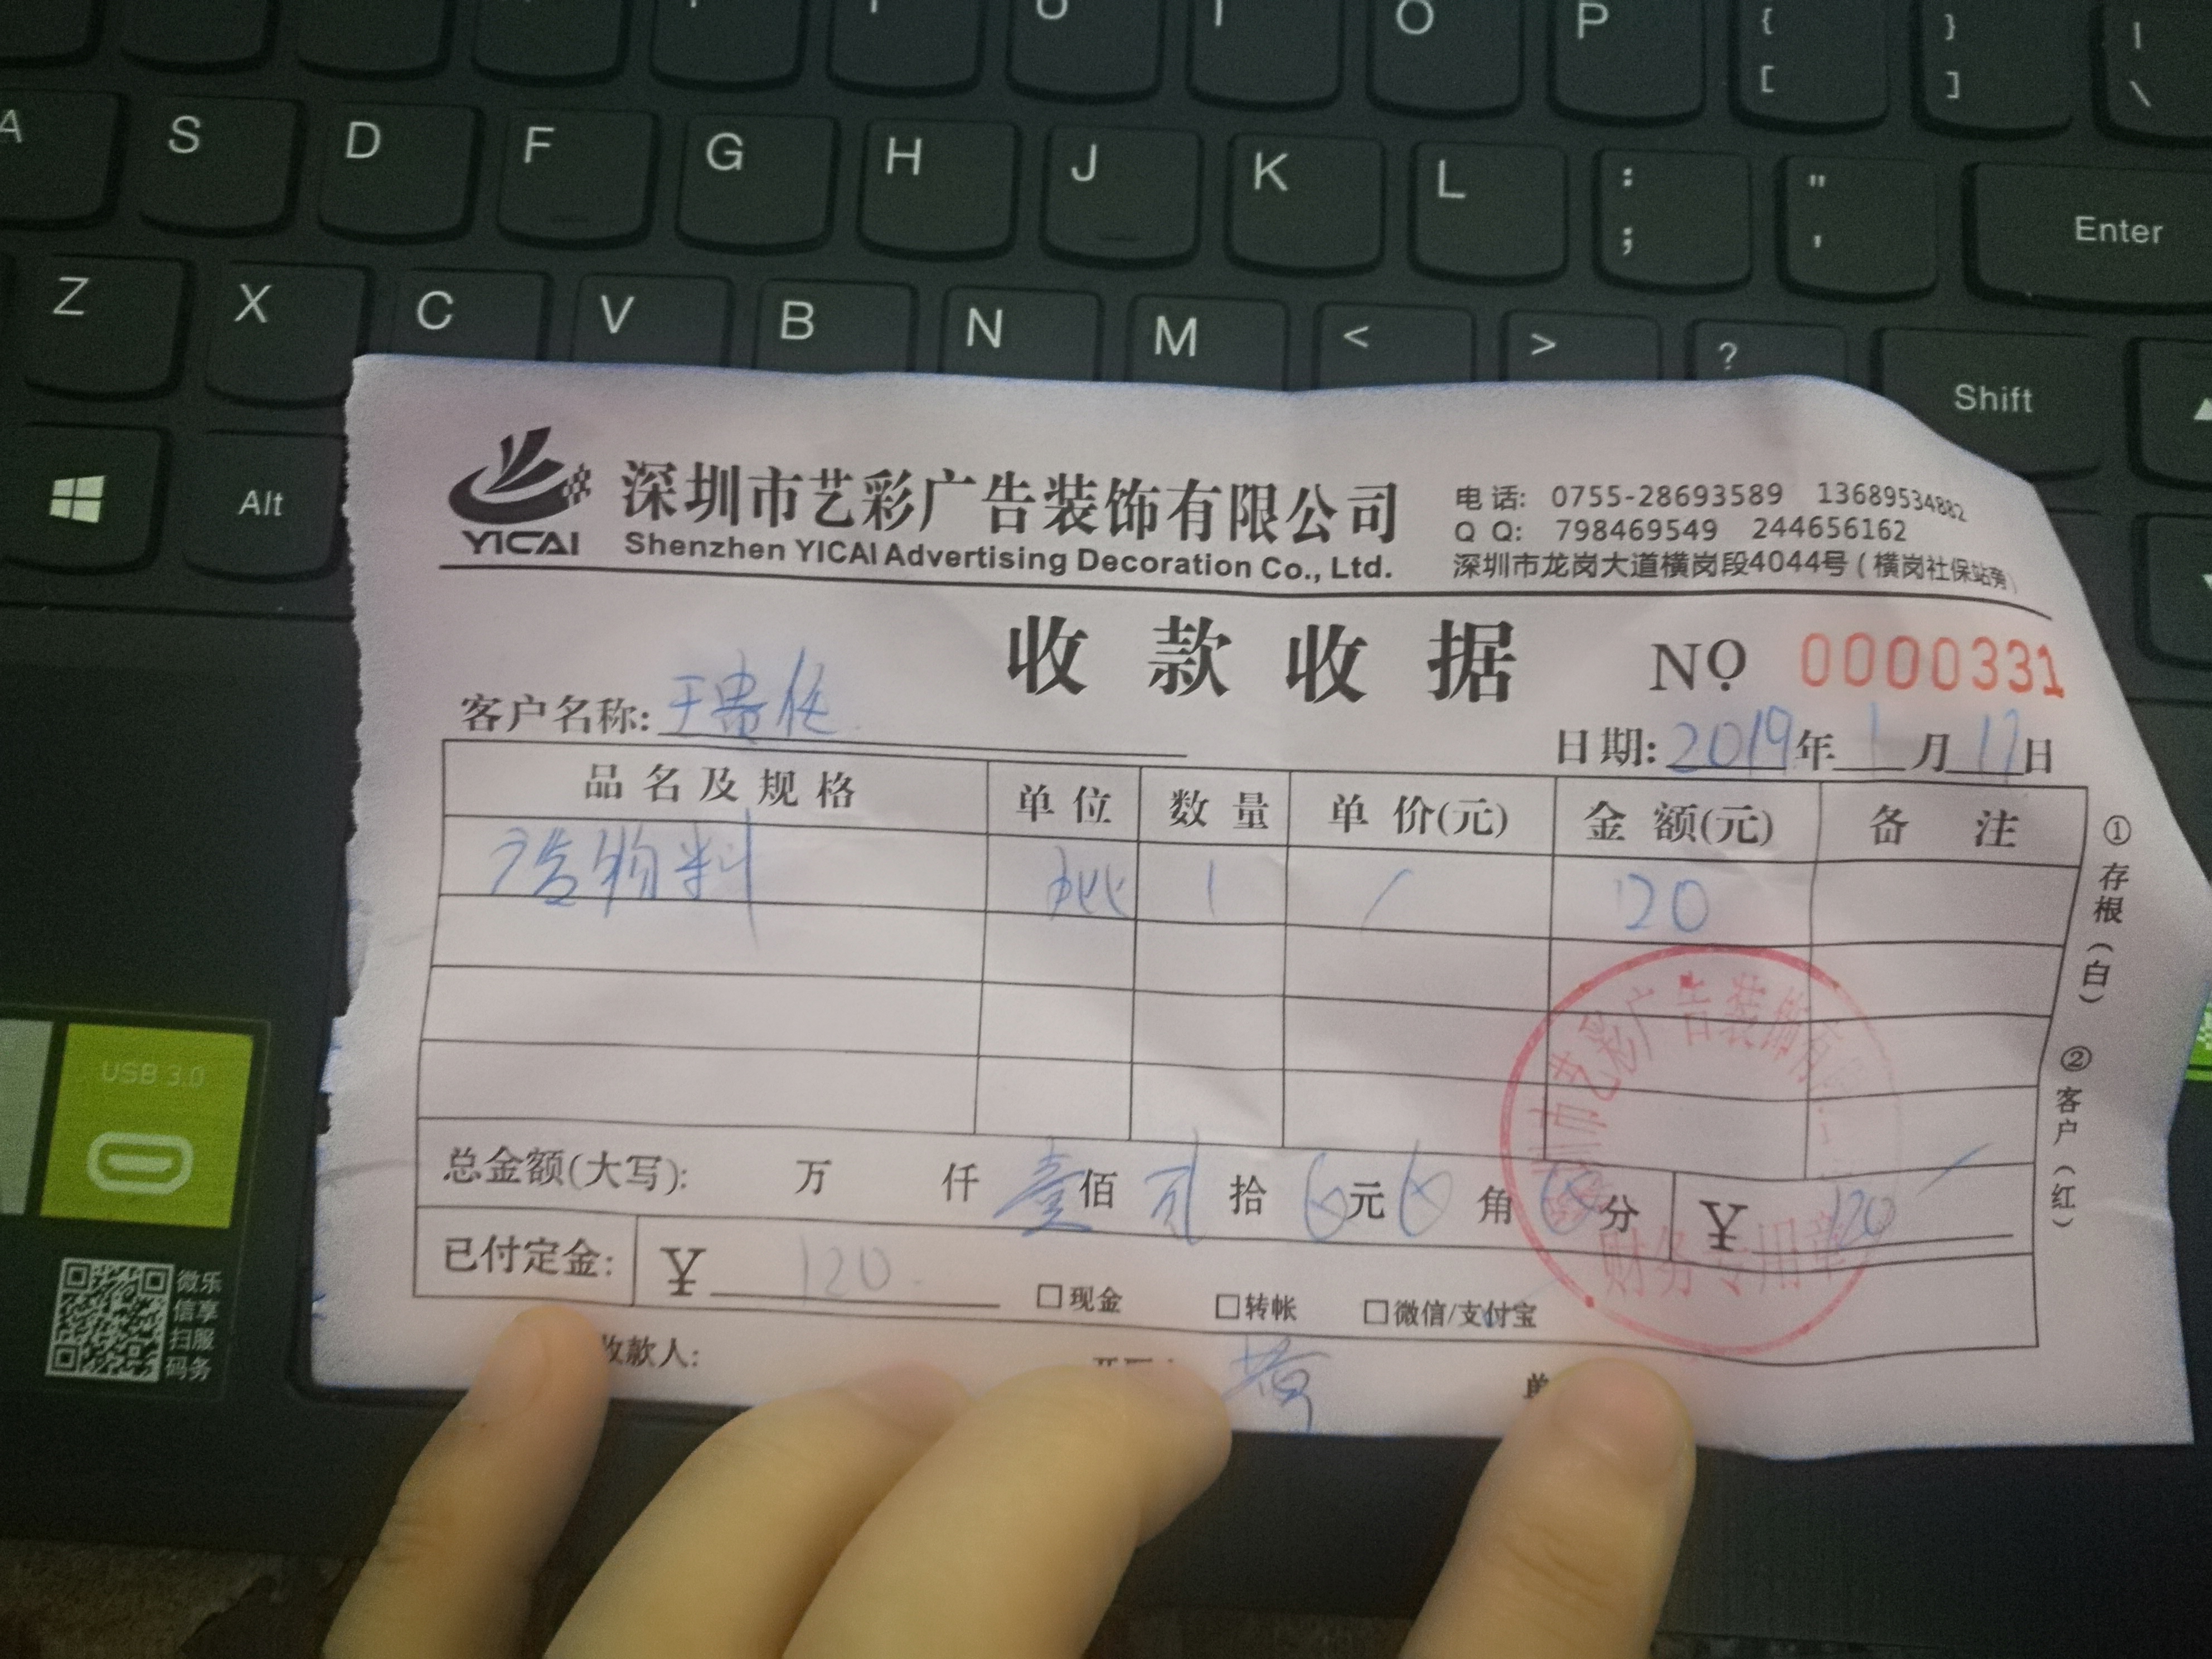 U I O P { [ } ] | \
A S D F G H J K L : ; " ' Enter
Z X C V B N M < > ? Shift
Alt
YICAI
深圳市艺彩广告装饰有限公司
Shenzhen YICAI Advertising Decoration Co., Ltd.
电 话: 0755-28693589 13689534882
Q Q: 798469549 244656162
深圳市龙岗大道横岗段4044号(横岗社保站旁)
收款收据
NO 0000331
客户名称:
日期: 2019年1月17日
品名及规格 单位 数量 单价(元) 金额(元) 备注
广告物料 批 1 / 120
①存根(白) ②客户(红)
总金额(大写): 万 仟 壹佰 贰拾 元 角 分 ¥ 120
已付定金: ¥ 120 □现金 □转帐 □微信/支付宝
市艺彩广告装饰有限
财务专用章
收款人: 黄 单
USB 3.0
微乐
信享
扫服
码务